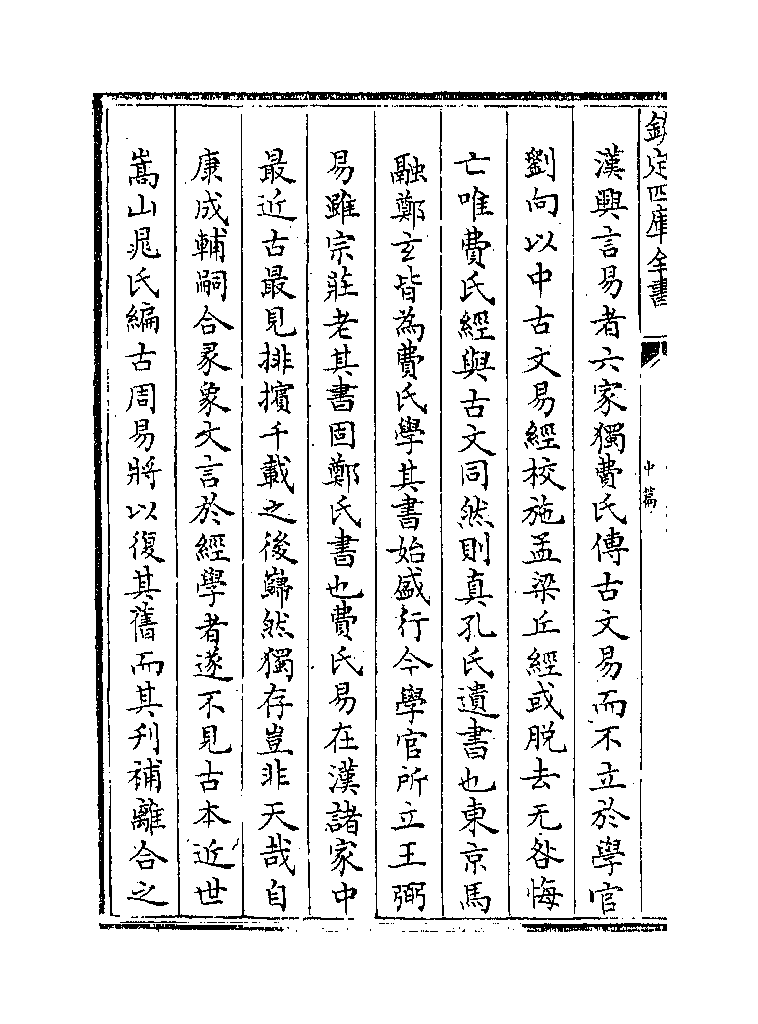 欽定四庫全書
中篇
漢興言易者六家獨費氏傳古文易而不立於學官
劉向以中古文易經校施孟梁丘經或脱去无咎悔
亡唯費氏經與古文同然則真孔氏遺書也東京馬
融鄭玄皆為費氏學其書始盛行今學官所立王弼
易雖宗莊老其書固鄭氏書也費氏易在漢諸家中
最近古最見排擯千載之後巋然獨存豈非天哉自
康成輔嗣合彖象文言於經學者遂不見古本近世
嵩山晁氏編古周易將以復其舊而其刋補離合之